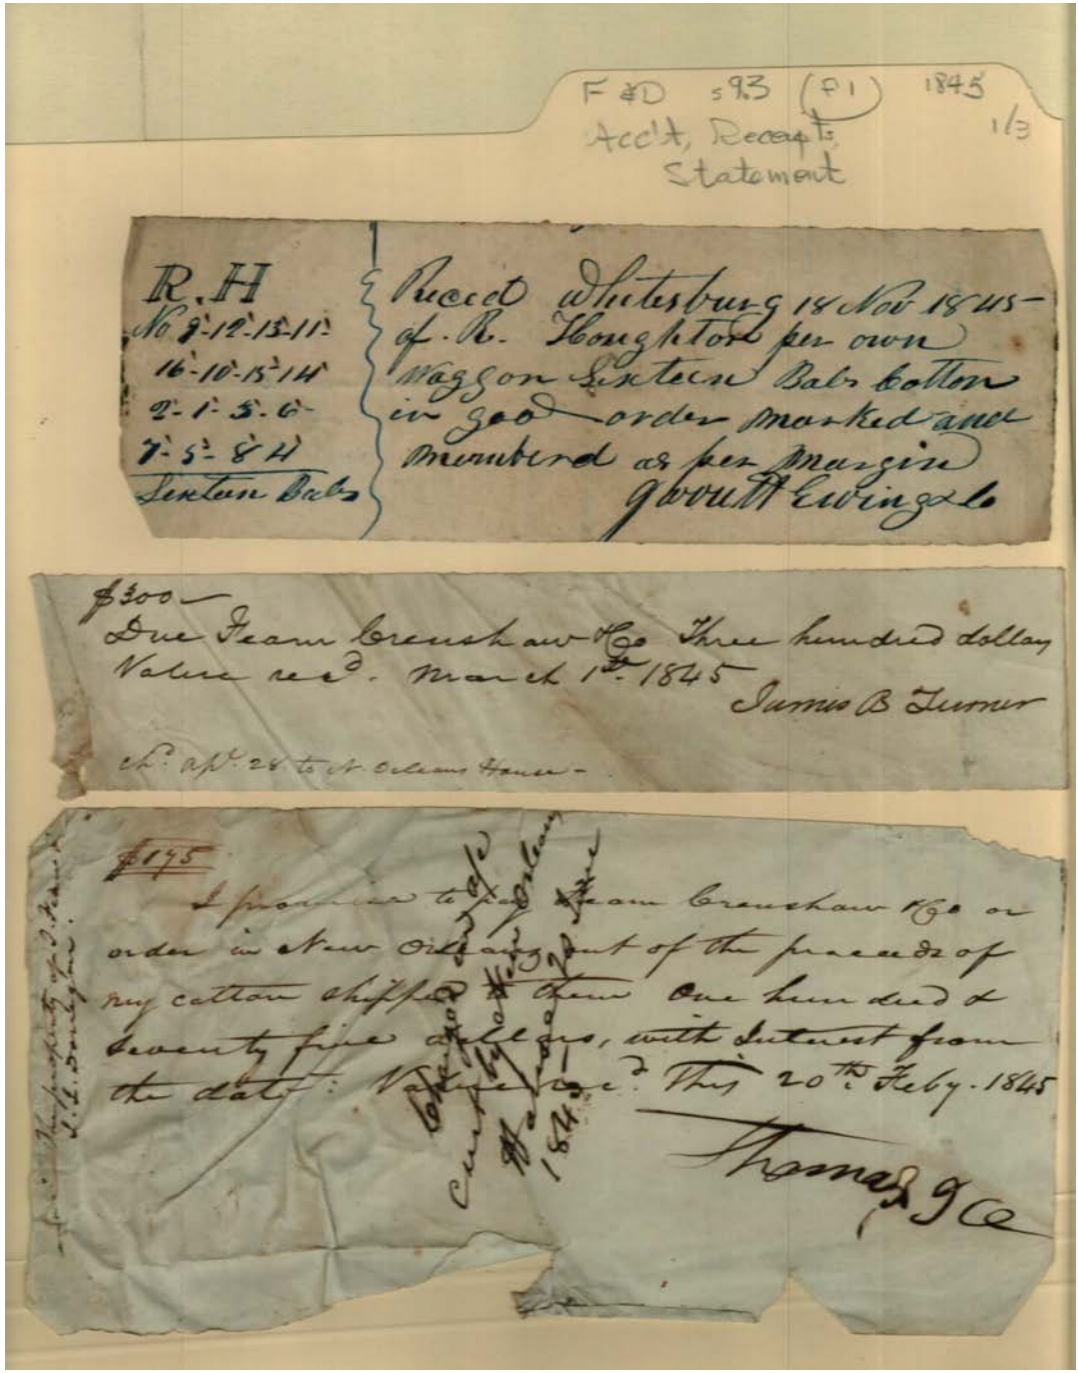 F & D s 93 (P1) 1845
1/3
Acc't, Receipts,
Statement
R. H
No 9-12-13-11-
16-10-15-14
2-1-3-6-
7-5-8 4
Sixteen Bales
Receed Whitesburg 18 Nov 1845
of. R. Houghton per own
Waggon Sixteen Bales Cotton
in good order marked and
numberd as per Margin
Ewing & Co
$300
Due Fearn Crenshaw & Co Three hundred dollars
Value recd. March 1st. 1845
James B Turner
apl. 28 to N. Orleans House -
$175
I promise to pay Fearn Crenshaw & Co or
order in New Orleans out of the proceeds of
my cotton shipped to them One hundred &
seventy five dollars, with Interest from
the date: Value recd. This 20th. Feby. 1845
Thomas
Charged in a/c
Curt by New Orleans
House 20 June
1845
The property of J. Fearn &